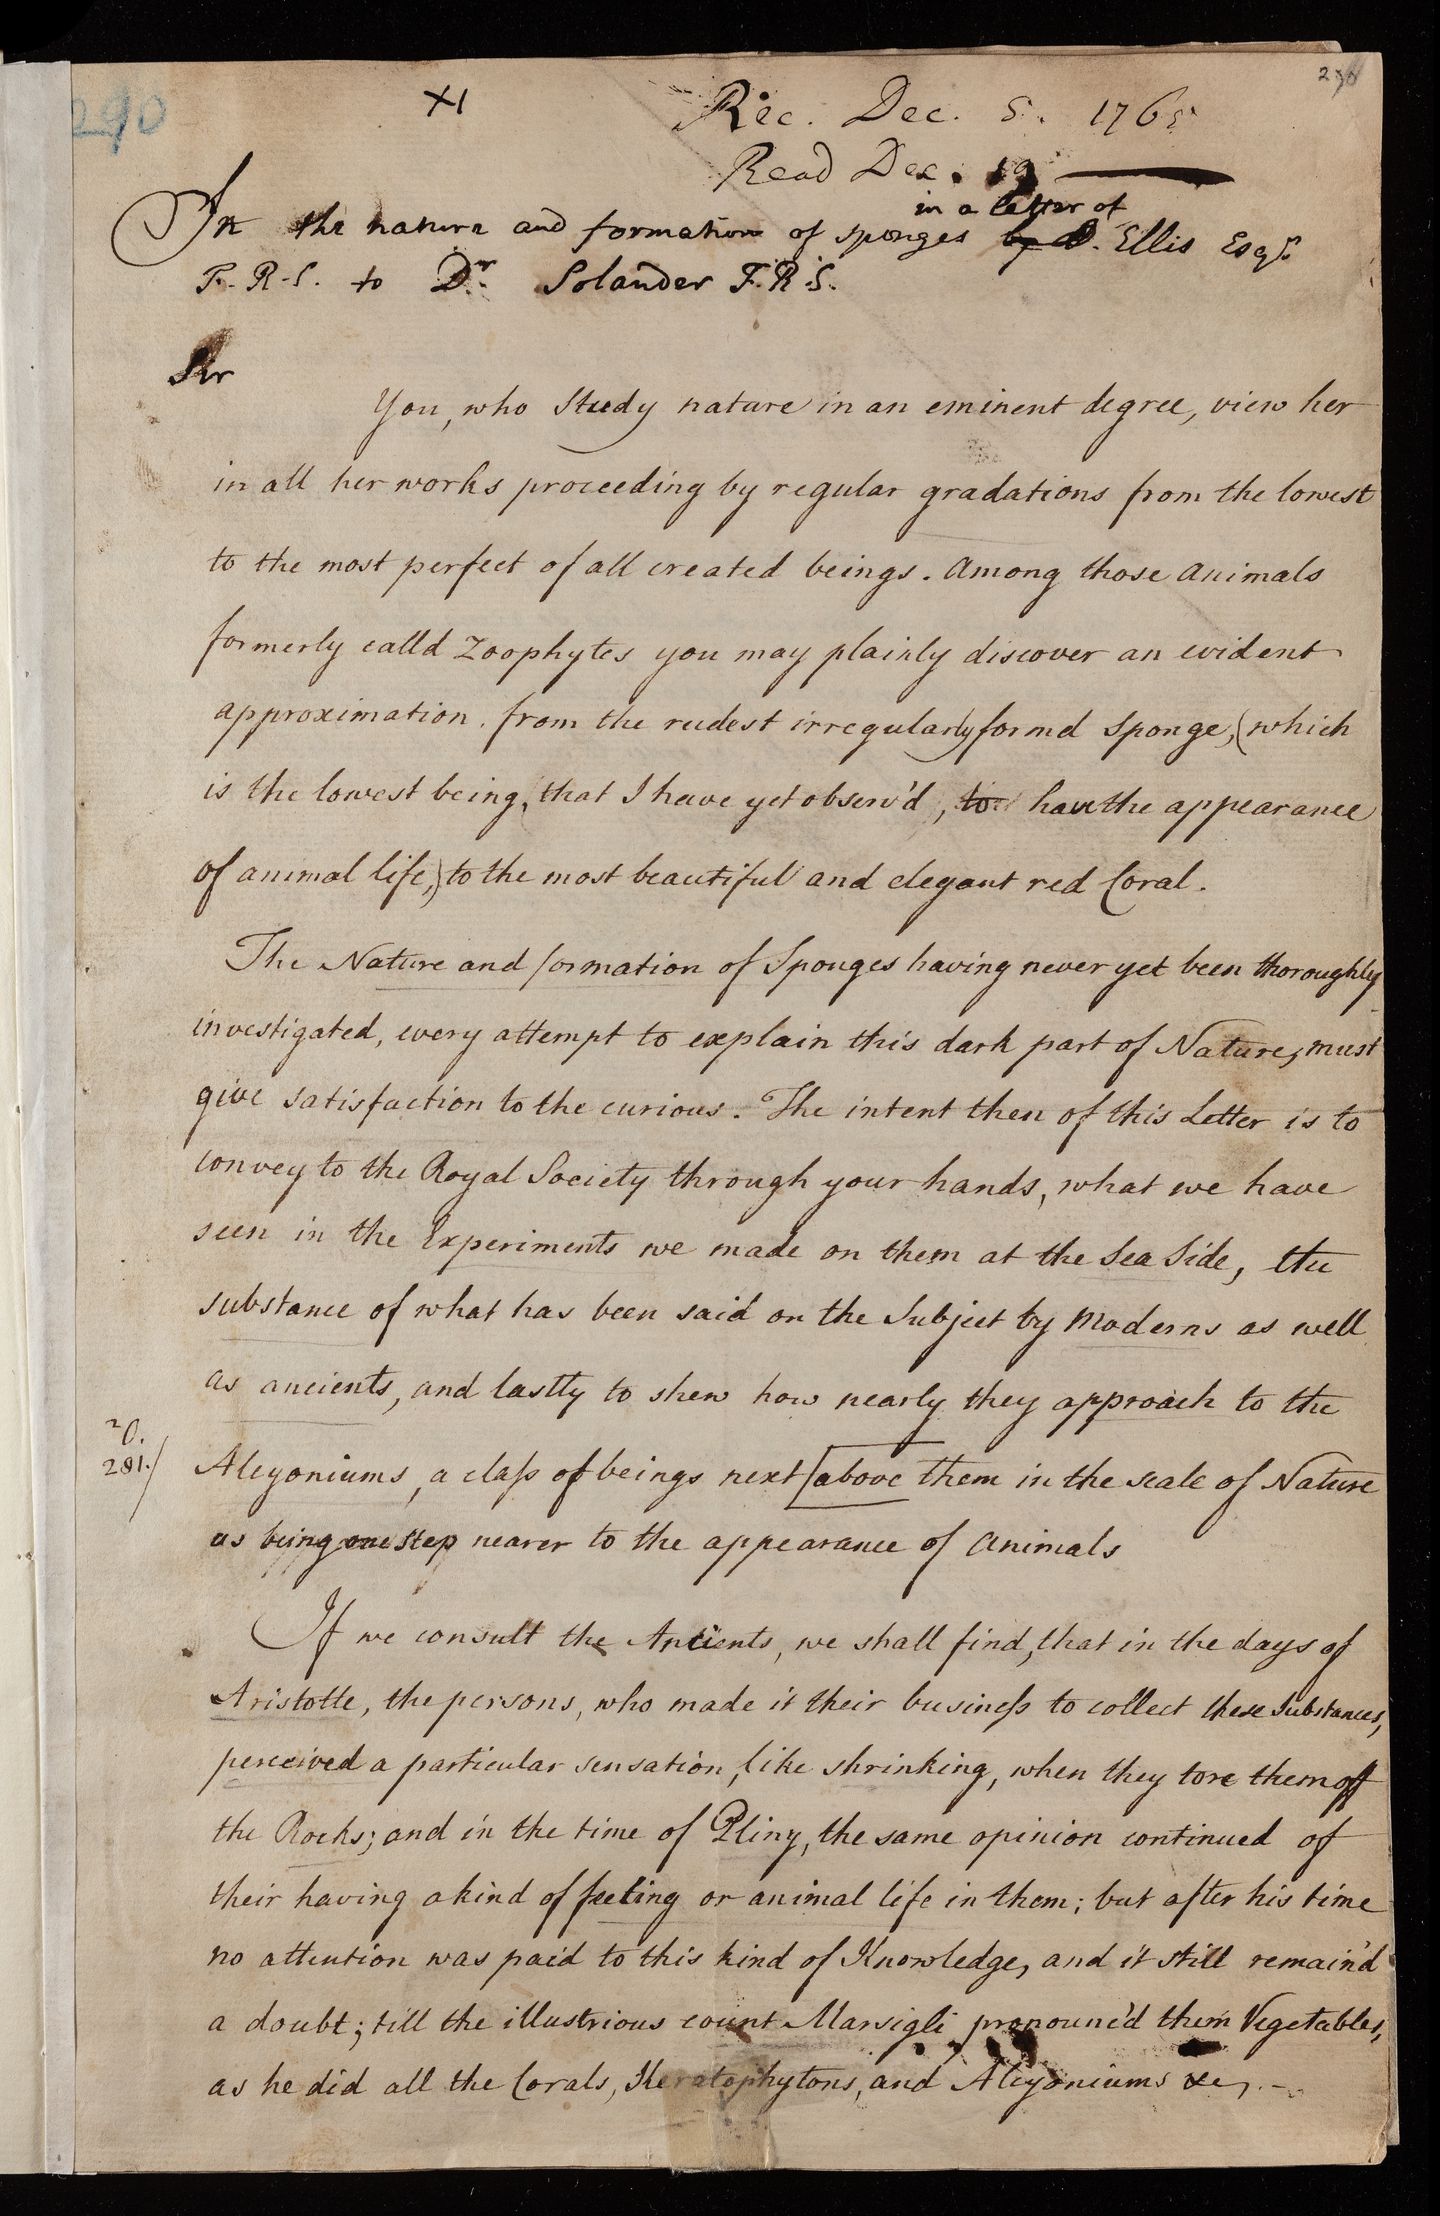 290
XI
290
Rec. Dec. 5. 1765
Read Dec. 19
in a letter of
In the nature and formation of sponges by D. Ellis Esqr.
F.R.S. to Dr. Solander F.R.S.
Sir
You, who study nature in an eminent degree, view her
in all her works proceeding by regular gradations from the lowest
to the most perfect of all created beings. Among those Animals
formerly calld Zoophytes you may plainly discover an evident
approximation. from the rudest irregularly formd Sponge, (which
is the lowest being, that I have yet observ'd, to have the appearance
of animal life,) to the most beautiful and elegant red Coral.
The Nature and formation of Sponges having never yet been thoroughly
investigated, every attempt to explain this dark part of Nature, must
give satisfaction to the curious. The intent then of this Letter is to
convey to the Royal Society through your hands, what we have
seen in the Experiments we made on them at the Sea Side, the
substance of what has been said on the Subject by Moderns as well
as ancients, and lastly to shew how nearly they approach to the
2O.
281./
Alcyoniums, a class of beings next [above them in the scale of Nature
as being one step nearer to the appearance of Animals
If we consult the Ancients, we shall find, that in the days of
Aristotle, the persons, who made it their business to collect these Substances,
perceived a particular sensation, like shrinking, when they tore them off
the Rocks; and in the time of Pliny, the same opinion continued of
their having a kind of feeling or animal life in them; but after his time
no attention was paid to this kind of Knowledge, and it still remain'd
a doubt; till the illustrious count Marsigli pronounc'd them Vegetables,
as he did all the Corals, Keratophytons, and Alcyoniums &c,-